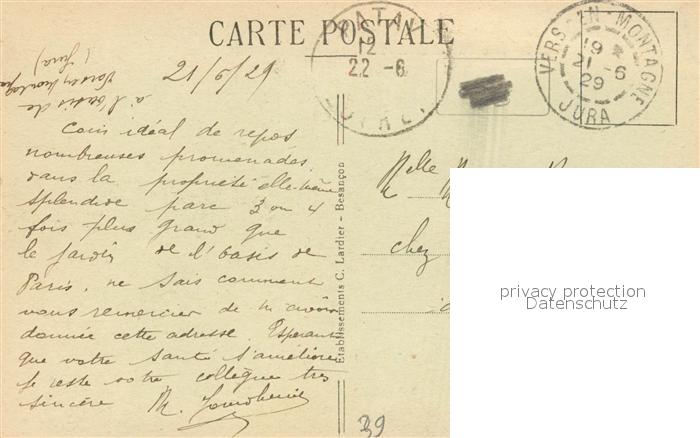 CARTE POSTALE
PATAY
12
22 -6
VERS-EN-MONTAGNE
19 *
21 -6
29
JURA
à l'oasis de
Vers en montagne
(Jura)
21/6/29
Coin idéal de repos
nombreuses promenades
dans la propriété elle-même
splendide parc 3 ou 4
fois plus grand que
le jardin de l'oasis de
Paris. ne sais comment
vous remercier de m'avoir
donnée cette adresse. Espérant
que votre santé s'améliore
je reste votre collègue très
sincère M.
Etablissements C. Lardier - Besançon
Melle
chez
39
privacy protection
Datenschutz